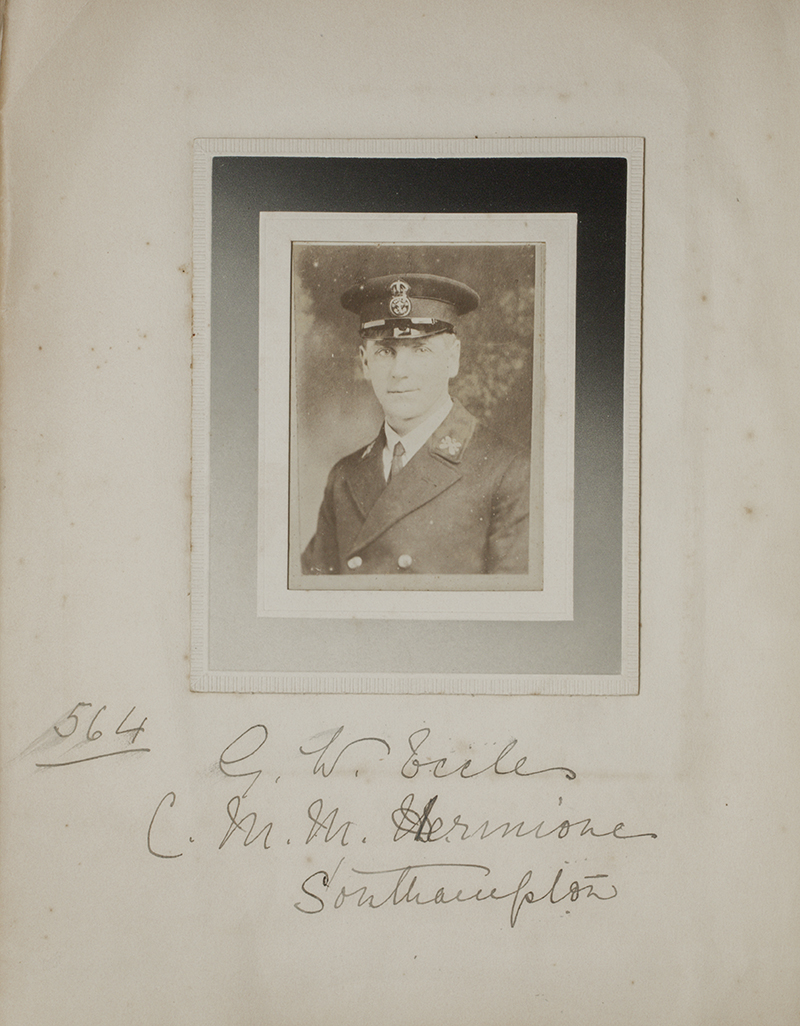 564
G. W. Eccles
C. M. M. Hermione
Southampton